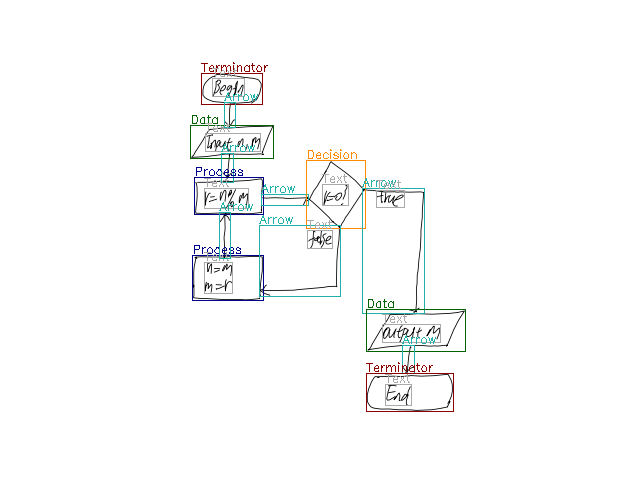 Terminator
Text
Begin
Arrow
Data
Text
Input n, m
Arrow
Process
Text
r=n% m
Arrow
Decision
Text
r=0!
Arrow
Text
true
Arrow
Text
false
Arrow
Process
Text
n=m
m=r
Arrow
Data
Text
output m
Arrow
Terminator
Text
End